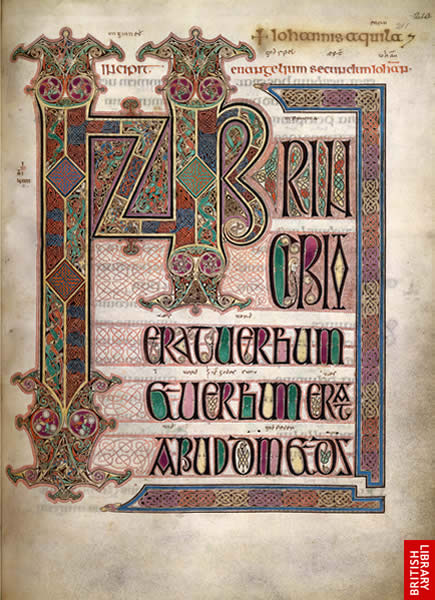 211
+ Iohannis aquila
Incipit euangelium secundum iohan
INPRIN
CIPIO
ERATUERBUM
ETUERBUMERAT
APUDDMETDS
BRITISH
LIBRARY